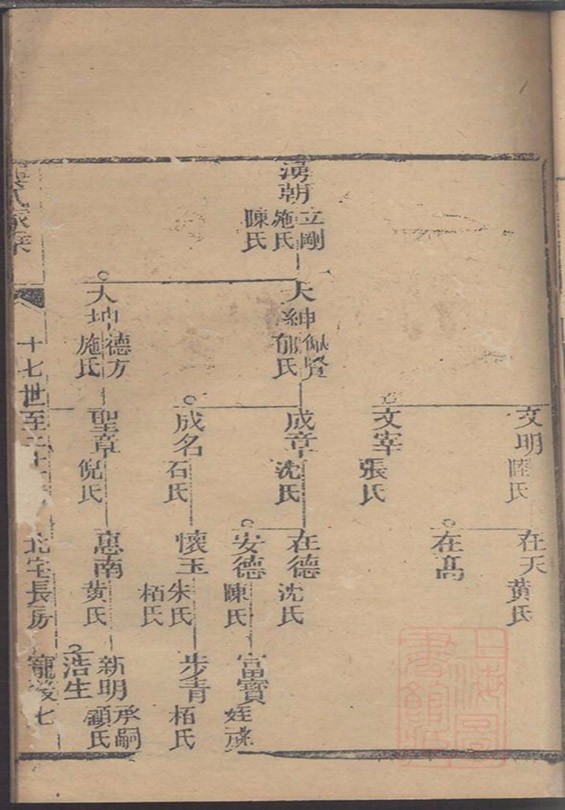 湧朝
立剛
施氏
陳氏
大紳
佩賢
郁氏
大坤
德方
施氏
文明
陸氏
文宰
張氏
成章
沈氏
成名
石氏
聖章
倪氏
在天
黃氏
在高
在德
沈氏
安德
陳氏
懷玉
朱氏
栢氏
惠南
黃氏
富寶
步青
栢氏
新明
承嗣
顧氏
浩生
氏家乘
十七世至二十
北宅長房
七
上海圖書館藏